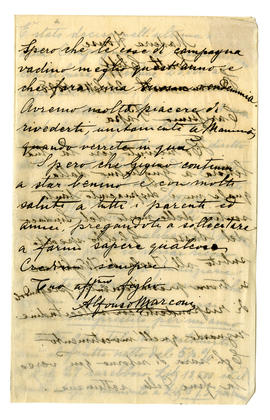 Spero che le cose di campagna
vadino meglio quest'anno e
che farai una buona vendemmia.
Avremo molto piacere di
rivederti, unitamente a Mammà,
quando verrete in qua.
Spero che Gigino continua
a star benino e con molti
saluti a tutti, parenti ed
amici, pregandoti a sollecitare
a farmi sapere qualcosa
Credimi sempre
Tuo affmo
Alfonso Marconi